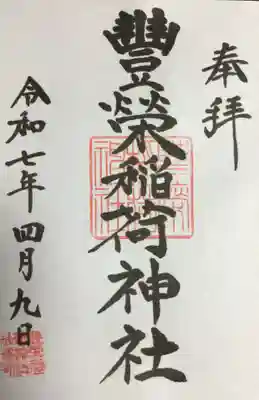 奉拜
豐榮稲荷神社
令和七年四月九日